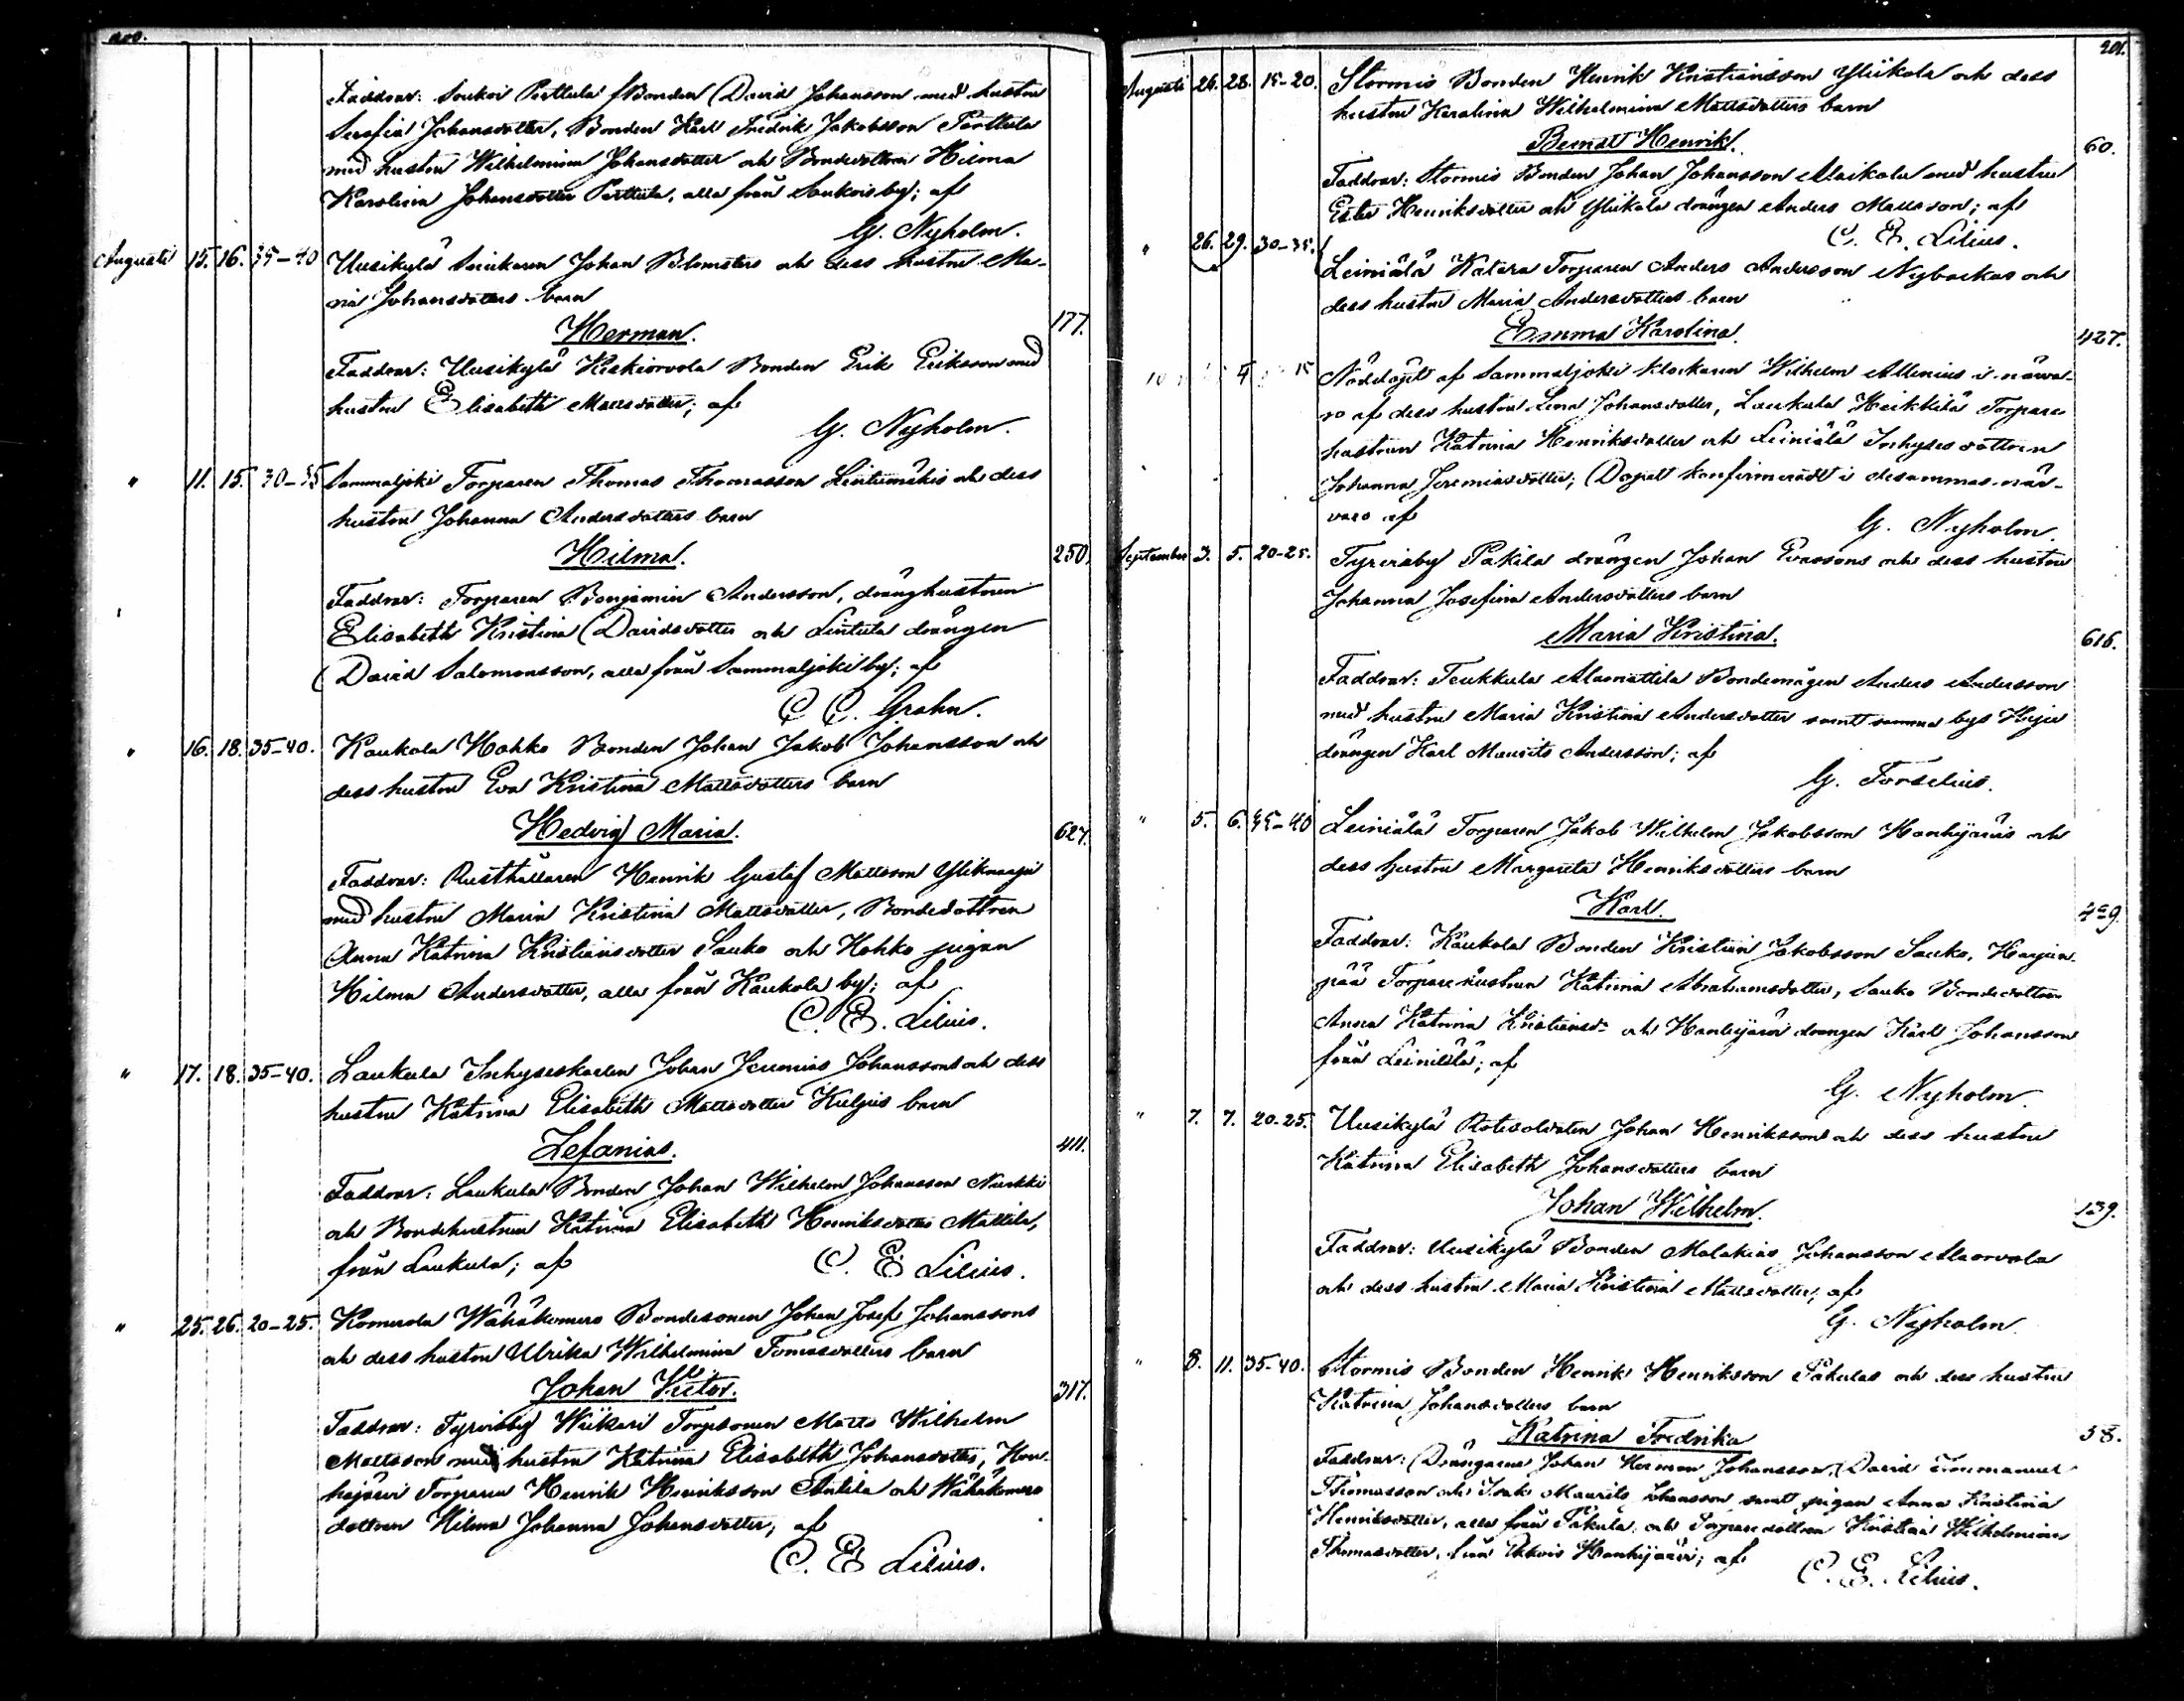 200.
Faddrar: Soukoi Perttula Bonden David Johansson med hustru
Serafia Johansdotter, Bonden Karl Fredrik Jakobsson Perttula
med hustru Wilhelmina Johansdotter och Bondedottren Hilma
Karolina Johansdotter Perttula, alla från Soukois by; af
G. Nyholm.
Augusti 15. 16. 35–40 Uusikylä Snickaren Johan Blomsters och dess hustru Ma-
ria Johansdotters barn
Herman. 177.
Faddrar: Uusikylä Keskiorvola Bonden Erik Eriksson med
hustru Elisabeth Mattsdotter; af
G. Nyholm.
" 11. 15. 30–35 Sammaljoki Torparen Thomas Thomasson Lintumäkis och dess
hustru Johanna Andersdotters barn
Hilma. 250.
Faddrar: Torparen Benjamin Andersson, dränghustrun
Elisabeth Kristina Davidsdotter och Lintula drängen
David Salomonsson, alla från Sammaljoki by; af
C. C. Grahn.
" 16. 18. 35–40. Kaukola Hohko Bonden Johan Jakob Johansson och
dess hustru Eva Kristina Mattsdotters barn
Hedvig Maria. 627.
Faddrar: Rusthållaren Henrik Gustaf Mattsson Yliknaapi
med hustru Maria Kristina Mattsdotter, Bondedottren
Anna Katrina Kristiansdotter Sauko och Hohko pigan
Hilma Andersdotter, alla från Kaukola by; af
C. E. Lilius.
" 17. 18. 35–40. Laukula Inhyseskarlen Johan Jeremias Johanssons och dess
hustru Katrina Elisabeth Mattsdotter Kulpus barn
Zefanias. 411.
Faddrar: Laukula Bonden Johan Wilhelm Johansson Nuokki
och Bondehustrun Katrina Elisabeth Henriksdotter Mattila,
från Laukula; af C. E. Lilius.
" 25. 26. 20–25. Komerola Wähäkomero Bondesonen Johan Josef Johanssons
och dess hustru Ulrika Wilhelmina Tomasdotters barn
Johan Victor. 317.
Faddrar: Tyrvisby Wiikari Torpsonen Matts Wilhelm
Mattsson med hustru Katrina Elisabeth Johansdotter, Han-
hijärvi Torparen Henrik Henriksson Anttila och Wähäkomero
dottren Hilma Johanna Johansdotter; af
C. E. Lilius.
201.
Augusti 26. 28. 15–20. Stormis Bonden Henrik Kristiansson Ylikola och dess
hustru Karolina Wilhelmina Mattsdotters barn
Berndt Henrik. 60.
Faddrar: Stormis Bonden Johan Johansson Alaikola med hustru
Ester Henriksdotter och Ylikola drängen Anders Mattsson; af
C. E. Lilius.
" 26. 29. 30–35. Leiniälä Katara Torparen Anders Andersson Nybackas och
dess hustru Maria Andersdotters barn
Emma Karolina. 427.
Nöddöpt af Sammaljoki klockaren Wilhelm Allenius i närva-
ro af dess hustru Lena Johansdotter, Laukula Heikkilä Torpare
hustrun Katrina Henriksdotter och Leiniälä Inhyses dottren
Johanna Jeremiasdotter; Dopet konfirmeradt i desammas när-
varo af
G. Nyholm.
September 3. 5. 20–25. Tyrvisby Pakila drängen Johan Evassons och dess hustru
Johanna Josefina Andersdotters barn
Maria Kristina. 616.
Faddrar: Teukkula Alamattila Bondemågen Anders Andersson
med hustru Maria Kristina Andersdotter samt samma bys Kuju
drängen Karl Maurits Andersson; af
G. Forselius.
" 5. 6. 35–40 Leiniälä Torparen Jakob Wilhelm Jakobsson Hanhijärvis och
dess hustru Margareta Henriksdotters barn
Karl. 429.
Faddrar: Kaukola Bonden Kristian Jakobsson Sauko, Harjun-
pää Torparehustrun Katrina Abrahamsdotter, Sauko Bondedottren
Anna Katrina Kristiansdr och Hanhijärvi drängen Karl Johansson
från Leiniälä; af
G. Nyholm.
" 7. 7. 20–25. Uusikylä Rotesoldaten Johan Henrikssons och dess hustru
Katrina Elisabeth Johansdotters barn
Johan Wilhelm. 139.
Faddrar: Uusikylä Bonden Malakias Johansson Alaorvola
och dess hustru Maria Kristina Mattsdotter; af
G. Nyholm.
" 8. 11. 35–40. Stormis Bonden Henrik Henriksson Pakulas och dess hustru
Katrina Johansdotters barn
Katrina Fredrika 58.
Faddrar: Drängarna Johan Herman Johansson, David Immanuel
Thomasson och Isak Maurits Johansson samt pigan Anna Kristina
Henriksdotter, alla från Pakula, och Torparedottren Kristina Wilhelmina
Thomasdotter, från Hanhijärvi; af C. E. Lilius.